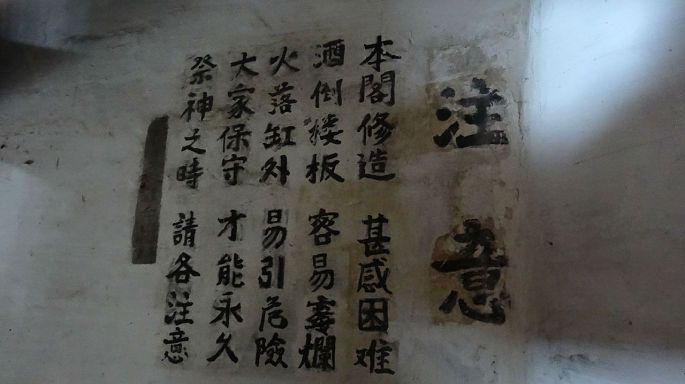 注意
本閣修造 甚感困难
酒倒楼板 容易霉爛
火落缸外 易引危險
大家保守 才能永久
祭神之時 請各注意